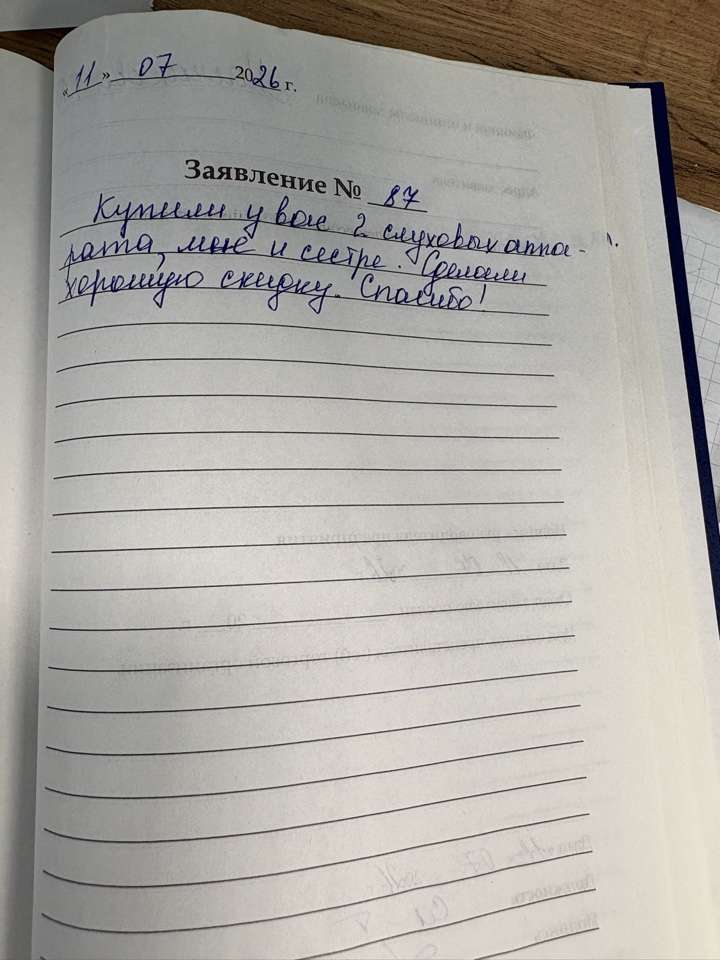 «11» 07 2026 г.
Заявление № 87
Купили у вас 2 слуховых аппа-
рата, мне и сестре. Сделали
хорошую скидку. Спасибо!